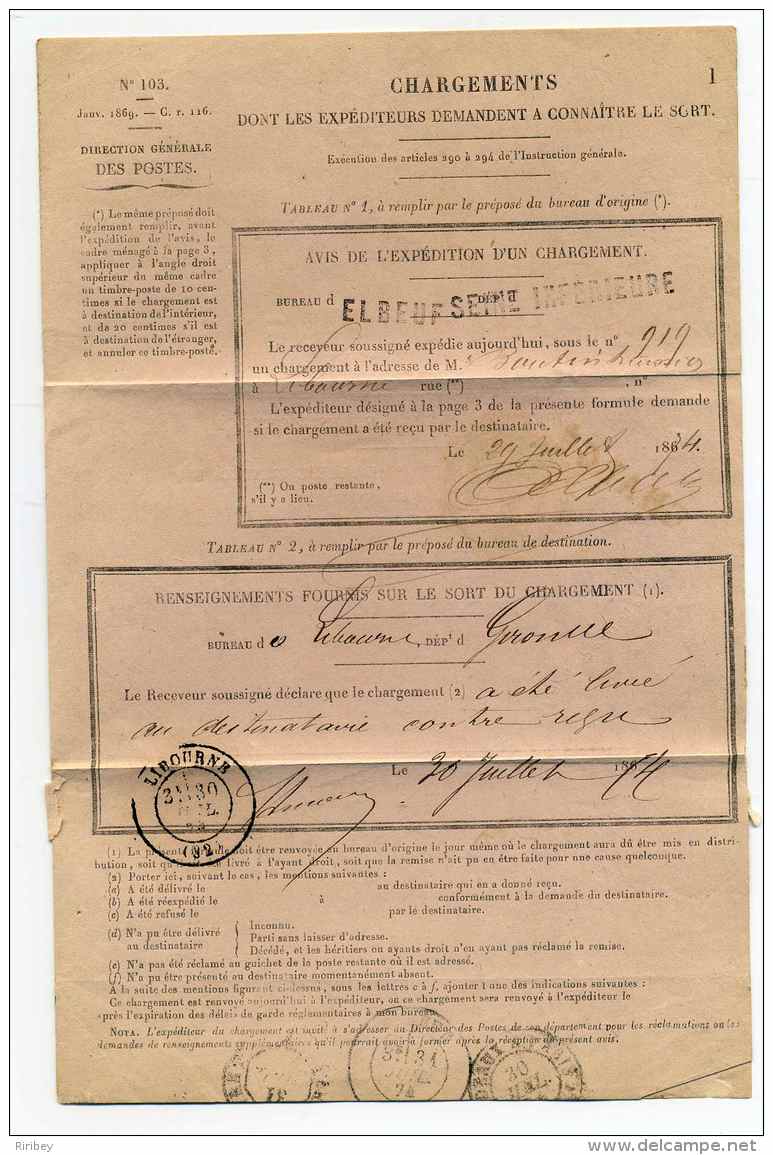 N° 103.
Janv. 1869. — C. r. 116.
DIRECTION GÉNÉRALE
DES POSTES.
(*) Le même préposé doit
également remplir, avant
l'expédition de l'avis, le
cadre ménagé à la page 3,
appliquer à l'angle droit
supérieur du même cadre
un timbre-poste de 10 cen-
times si le chargement est
à destination de l'intérieur,
et de 20 centimes s'il est
à destination de l'étranger,
et annuler ce timbre-poste.
1
CHARGEMENTS
DONT LES EXPÉDITEURS DEMANDENT A CONNAÎTRE LE SORT.
Exécution des articles 290 à 294 de l'Instruction générale.
TABLEAU N° 1, à remplir par le préposé du bureau d'origine (*).
AVIS DE L'EXPÉDITION D'UN CHARGEMENT.
BUREAU d ELBEUF DÉPt d SEINE INFERIEURE
Le receveur soussigné expédie aujourd'hui, sous le n° 919
un chargement à l'adresse de M.
à Libourne rue (**) , n°
L'expéditeur désigné à la page 3 de la présente formule demande
si le chargement a été reçu par le destinataire.
Le 29 Juillet 1874.
(**) Ou poste restante,
s'il y a lieu.
TABLEAU N° 2, à remplir par le préposé du bureau de destination.
RENSEIGNEMENTS FOURNIS SUR LE SORT DU CHARGEMENT (1).
BUREAU de Libourne, DÉPt d Gironde
Le Receveur soussigné déclare que le chargement (2) a été livré
au destinataire contre reçu
Le 30 Juillet 1874
LIBOURNE
30
JUIL.
(32)
(1) La présente formule doit être renvoyée au bureau d'origine le jour même où le chargement aura dû être mis en distri-
bution, soit qu'il ait été livré à l'ayant droit, soit que la remise n'ait pu en être faite pour une cause quelconque.
(2) Porter ici, suivant le cas, les mentions suivantes :
(a) A été délivré le au destinataire qui en a donné reçu.
(b) A été réexpédié le à conformément à la demande du destinataire.
(c) A été refusé le par le destinataire.
(d) N'a pu être délivré au destinataire { Inconnu.
Parti sans laisser d'adresse.
Décédé, et les héritiers ou ayants droit n'en ayant pas réclamé la remise.
(e) N'a pas été réclamé au guichet de la poste restante où il est adressé.
(f) N'a pu être présenté au destinataire momentanément absent.
A la suite des mentions figurant ci-dessus, sous les lettres c à f, ajouter l'une des indications suivantes :
Ce chargement est renvoyé aujourd'hui à l'expéditeur, ou ce chargement sera renvoyé à l'expéditeur le
après l'expiration des délais de garde réglementaires à mon bureau.
NOTA. L'expéditeur du chargement est invité à s'adresser au Directeur des Postes de son département pour les réclamations ou les
demandes de renseignements supplémentaires qu'il pourrait avoir à former après la réception du présent avis.
31
74
30
JUIL.
Riribey
delcampe.net